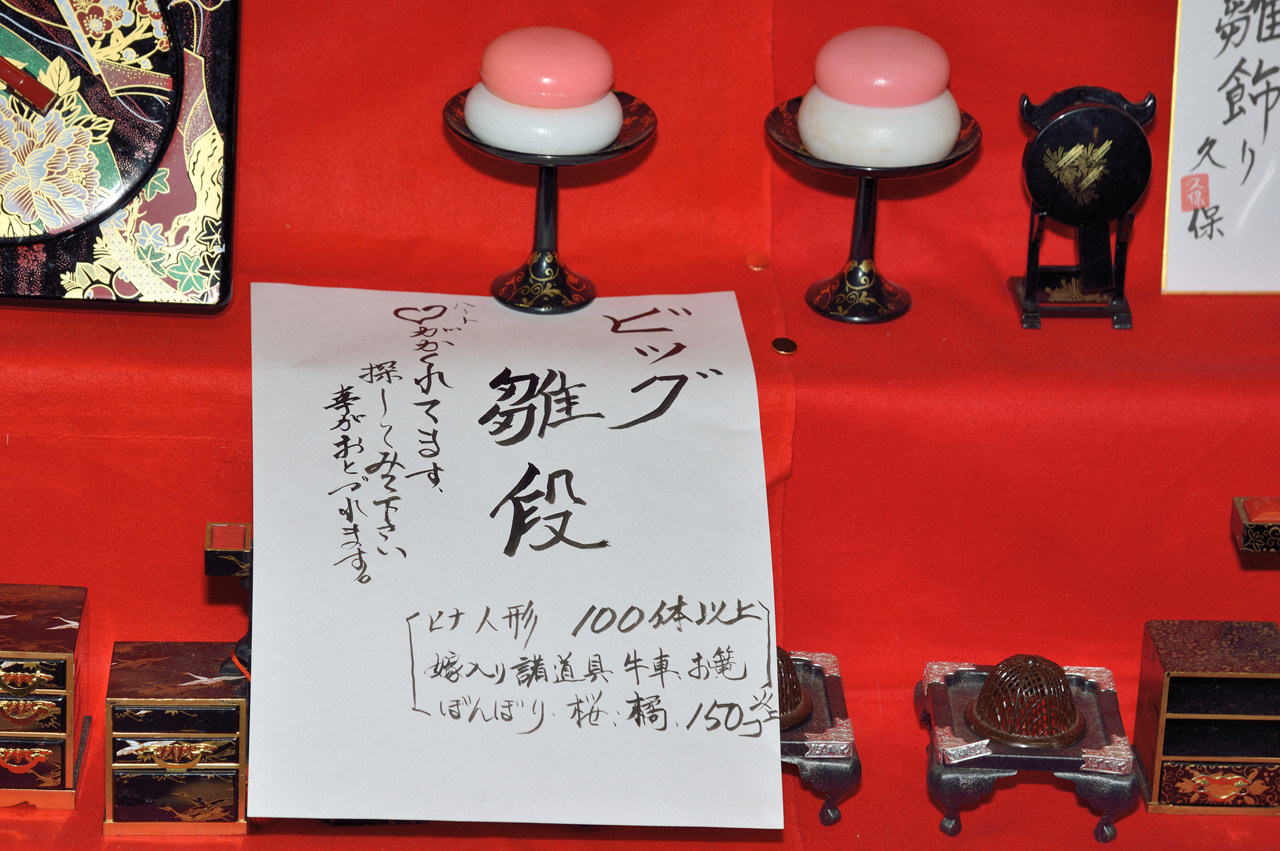 ビッグ
雛段
ハート
♡がかくれてます、
探してみて下さい
幸がおとづれます。
ヒナ人形 100体以上
嫁入り諸道具 牛車、お篭
ぼんぼり、桜、橘、150以上
雛飾り
久保
久保